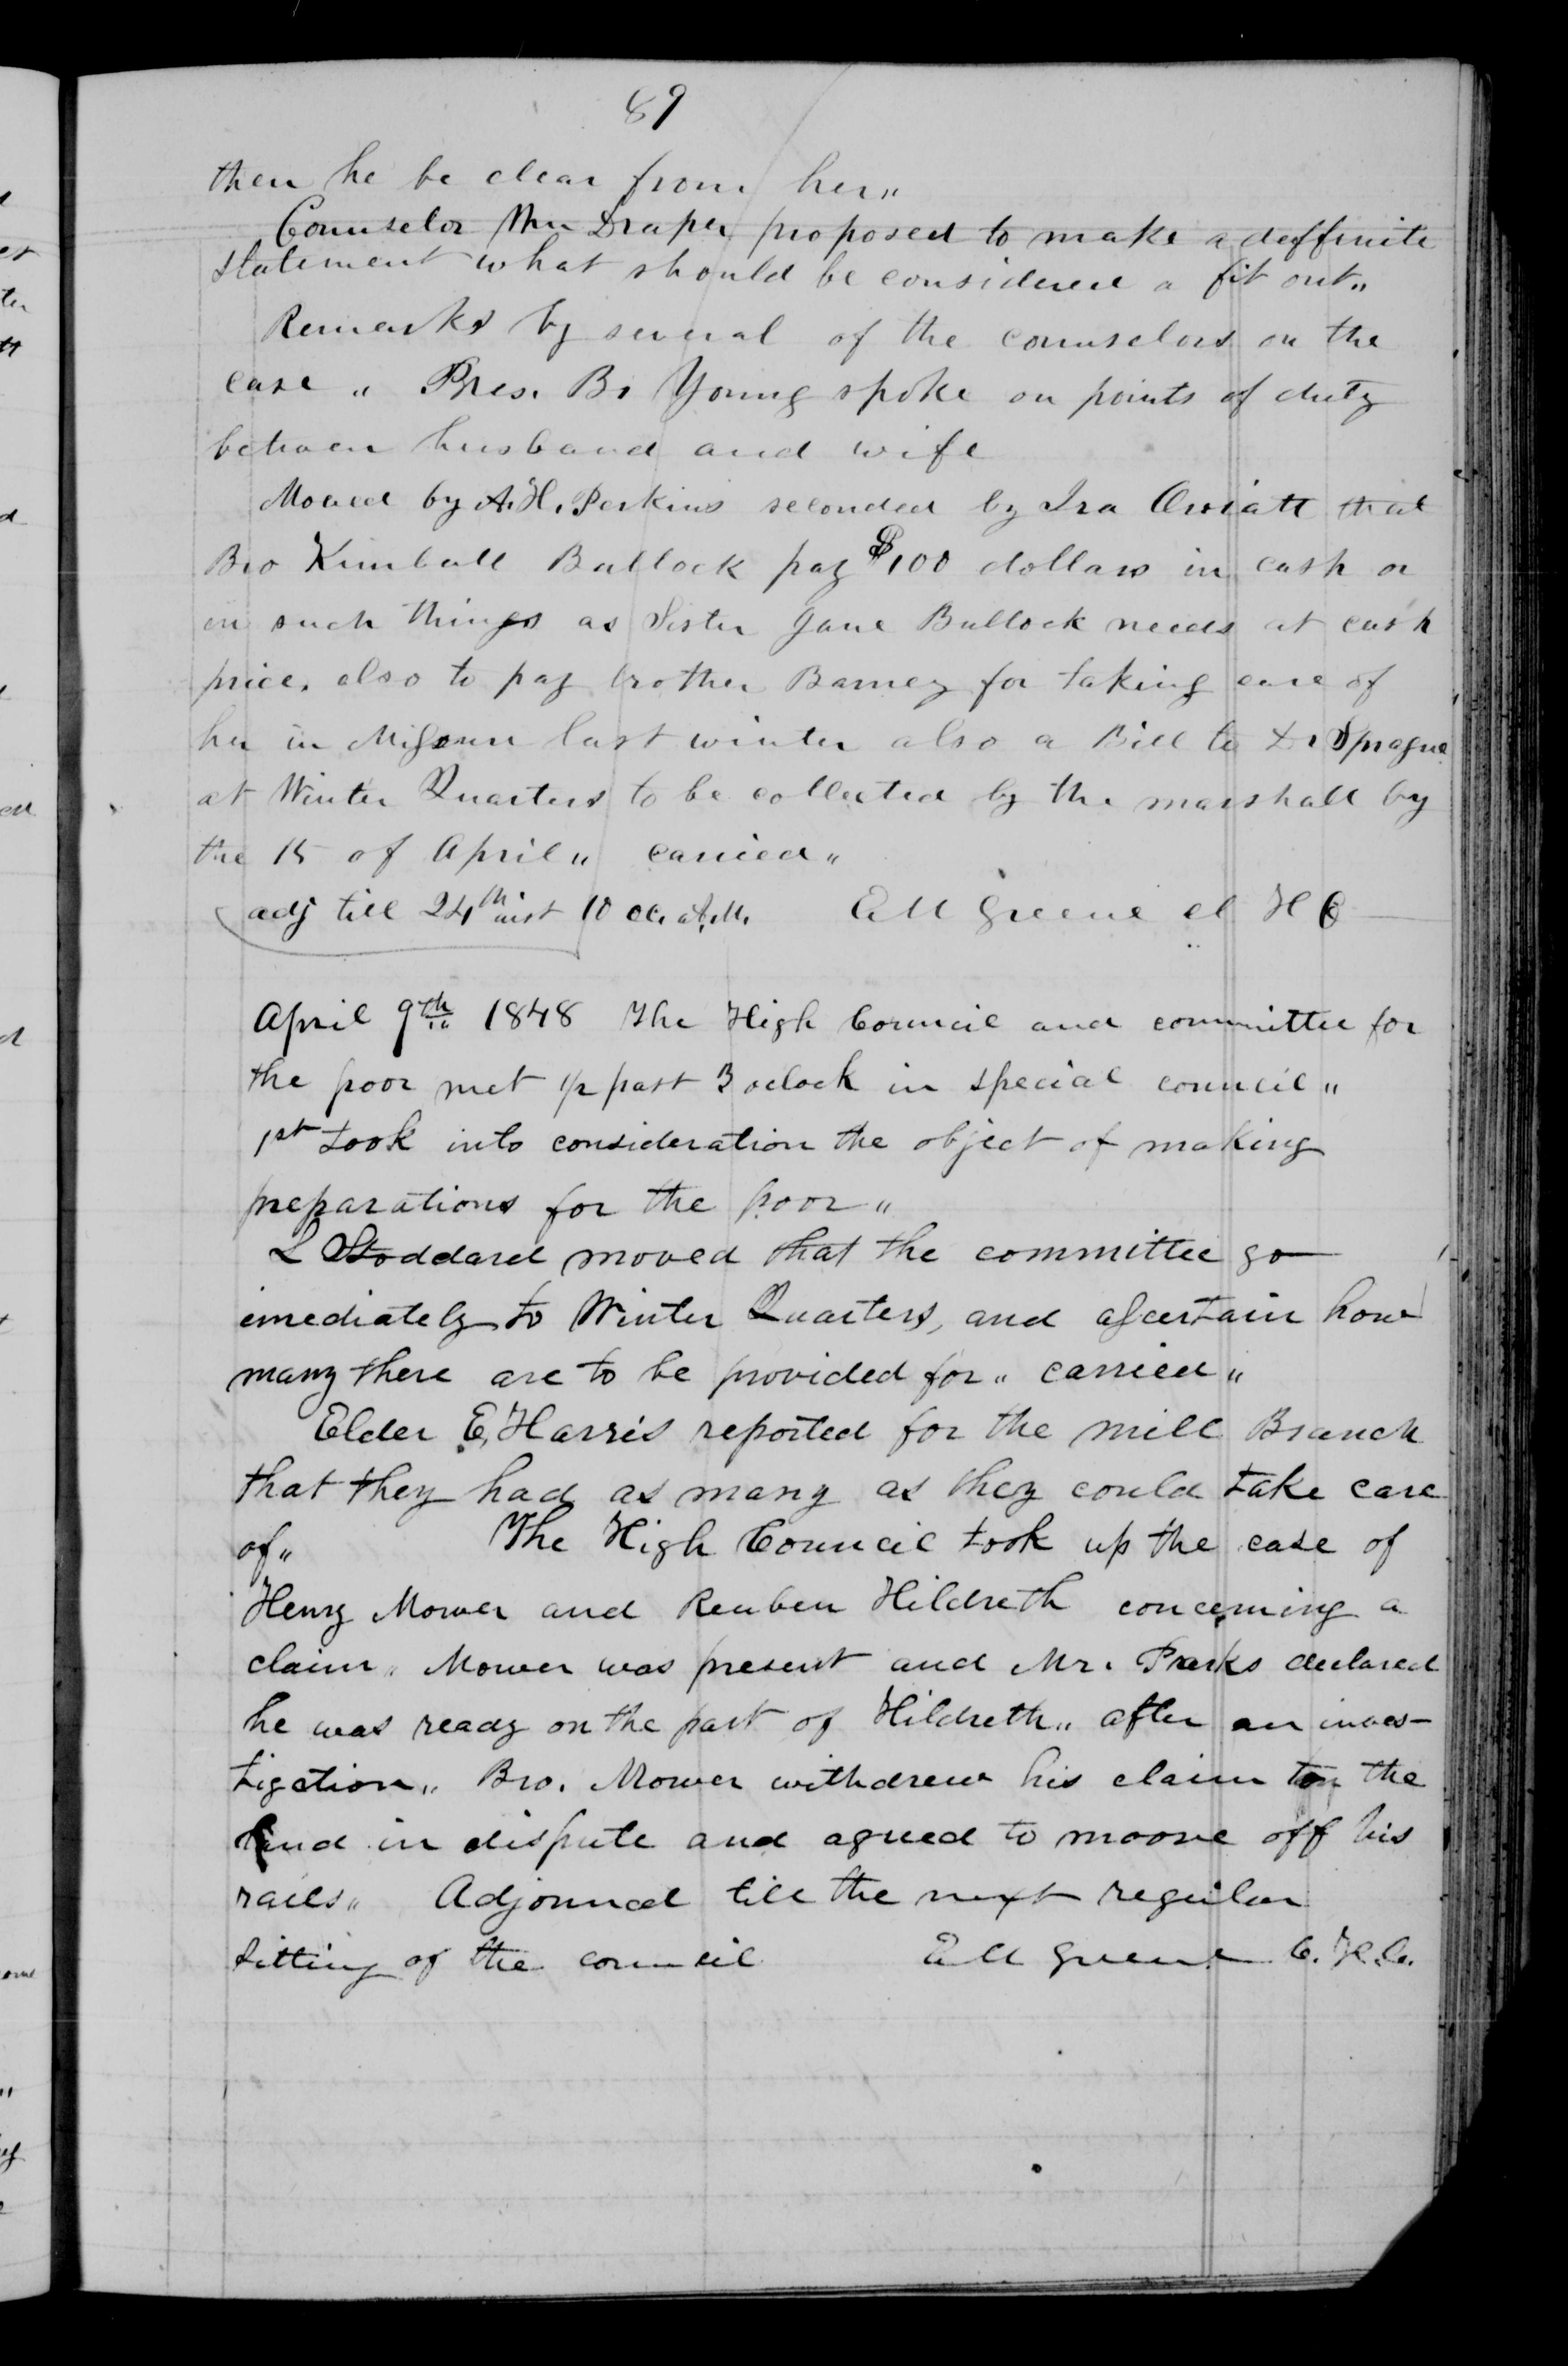 89
then he be clear from her"
Counselor Wm Draper proposed to make a deffinite
statement what should be considered a fit out"
Remarks by several of the counselors on the
case " Pres. Br Young spoke on points of duty
between husband and wife
Moved by A. H. Perkins seconded by Ira Oviatt that
Bro Kimball Bullock pay $100 dollars in cash or
in such things as Sister Jane Bullock needs at cash
price, also to pay brother Barney for taking care of
her in Missouri last winter also a Bill to Dr Sprague
at Winter Quarters to be collected by the marshall by
the 15 of April" carried"
adj till 24th inst 10 oc A.M. E M Greene cl H C
April 9th 1848 The High Council and committee for
the poor met 1/2 past 3 oclock in special council"
1st took into consideration the object of making
preparations for the poor"
L Stoddard moved that the committee go
imediately to Winter Quarters, and ascertain how
many there are to be provided for" carried"
Elder E. Harris reported for the mill Branch
that they had as many as they could take care
of" The High Council took up the case of
Henry Mower and Reuben Hildreth concerning a
claim" Mower was present and Mr. Parks declared
he was ready on the part of Hildreth" after an inves-
tigation" Bro. Mower withdrew his claim to the
land in dispute and agreed to moove off his
rails" Adjourned till the next regular
sitting of the council E M Greene C. H. C.